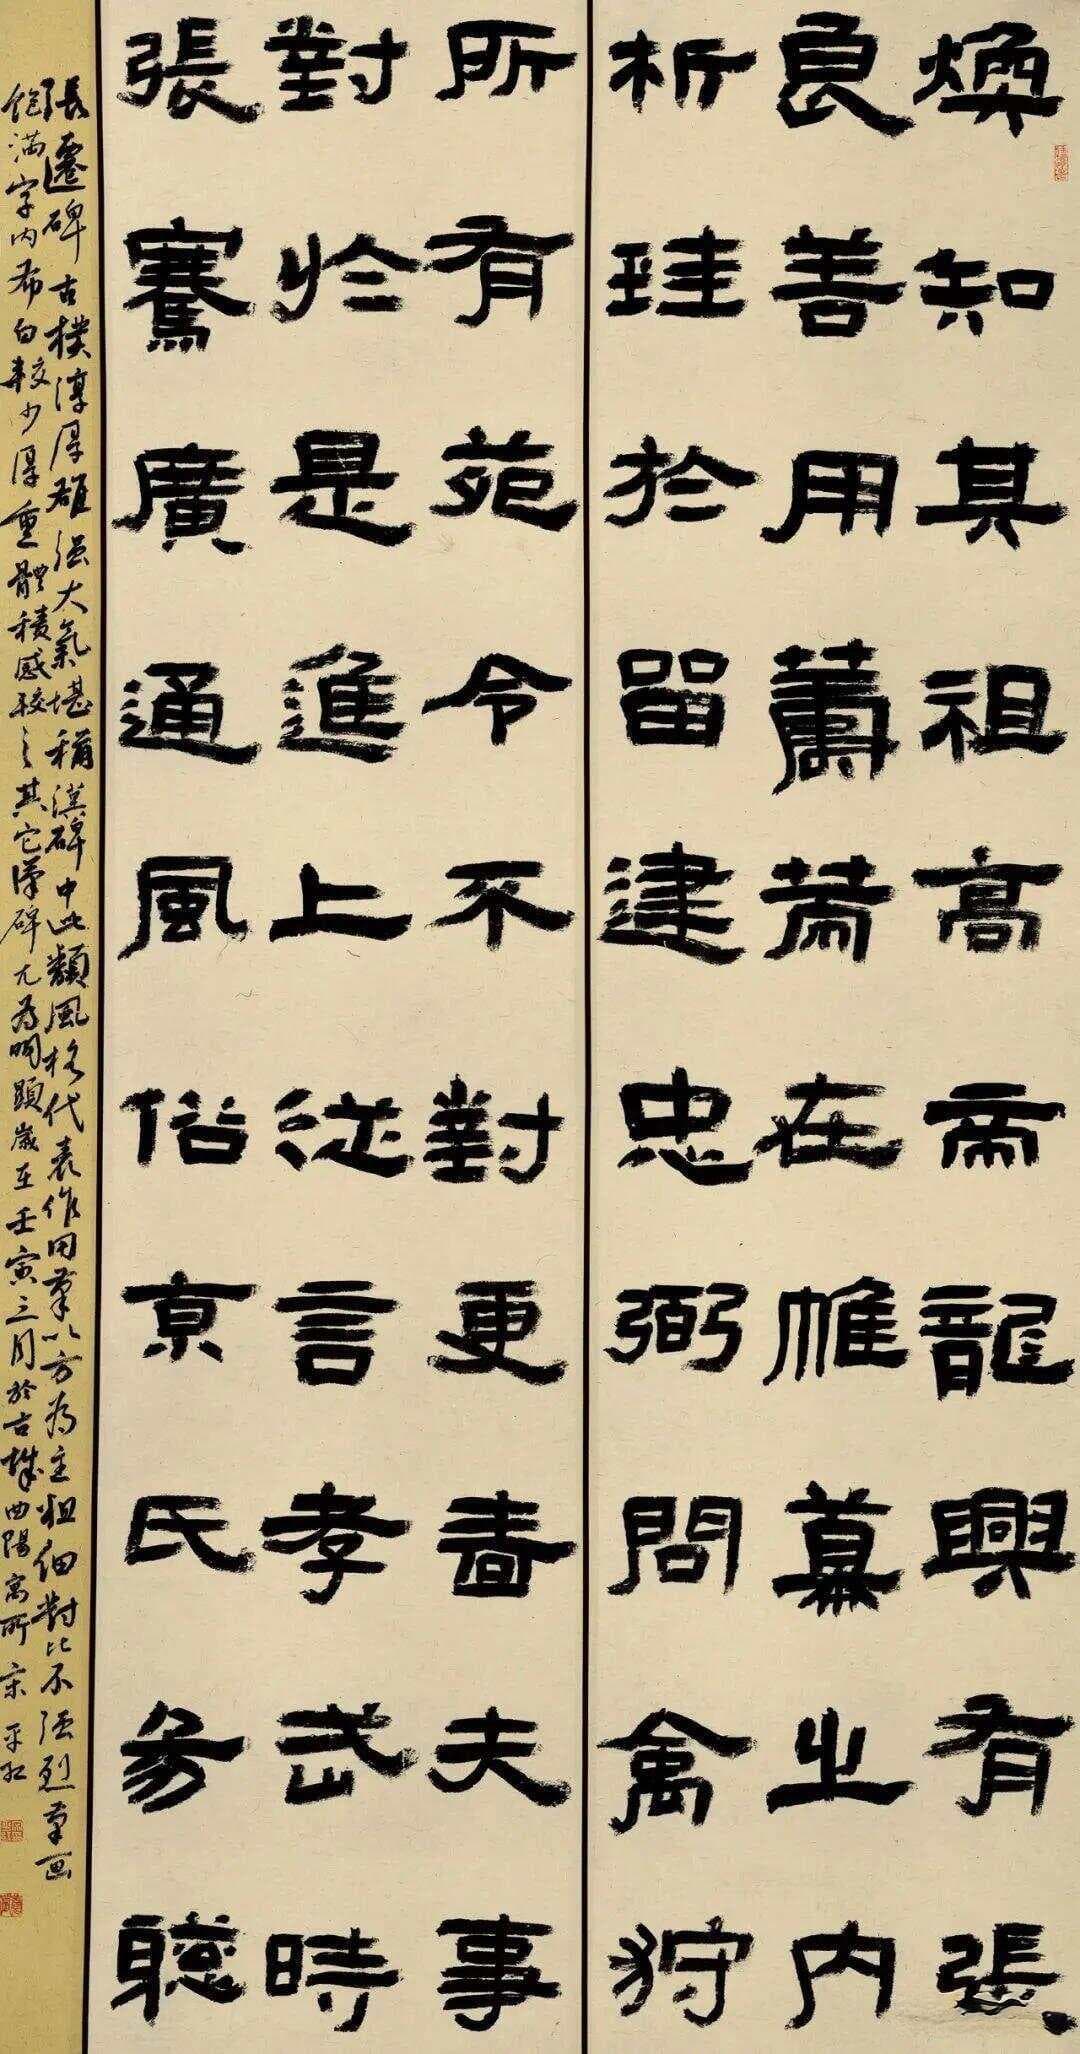 煥知其祖高帝龍興有張
良善用籌策在帷幕之內
析珪於留建忠弼問禽狩
所有苑令不對更嗇夫事
對於是進上從言孝武時
張騫廣通風俗京氏易聰
張遷碑古樸淳厚雄强大氣堪稱漢碑中此類風格代表作用筆以方為主粗細對比不强烈筆画
飽滿字内布白較少厚重體積感較之其它漢碑尤為明顯歲在壬寅三月於古城曲陽寓所宋平